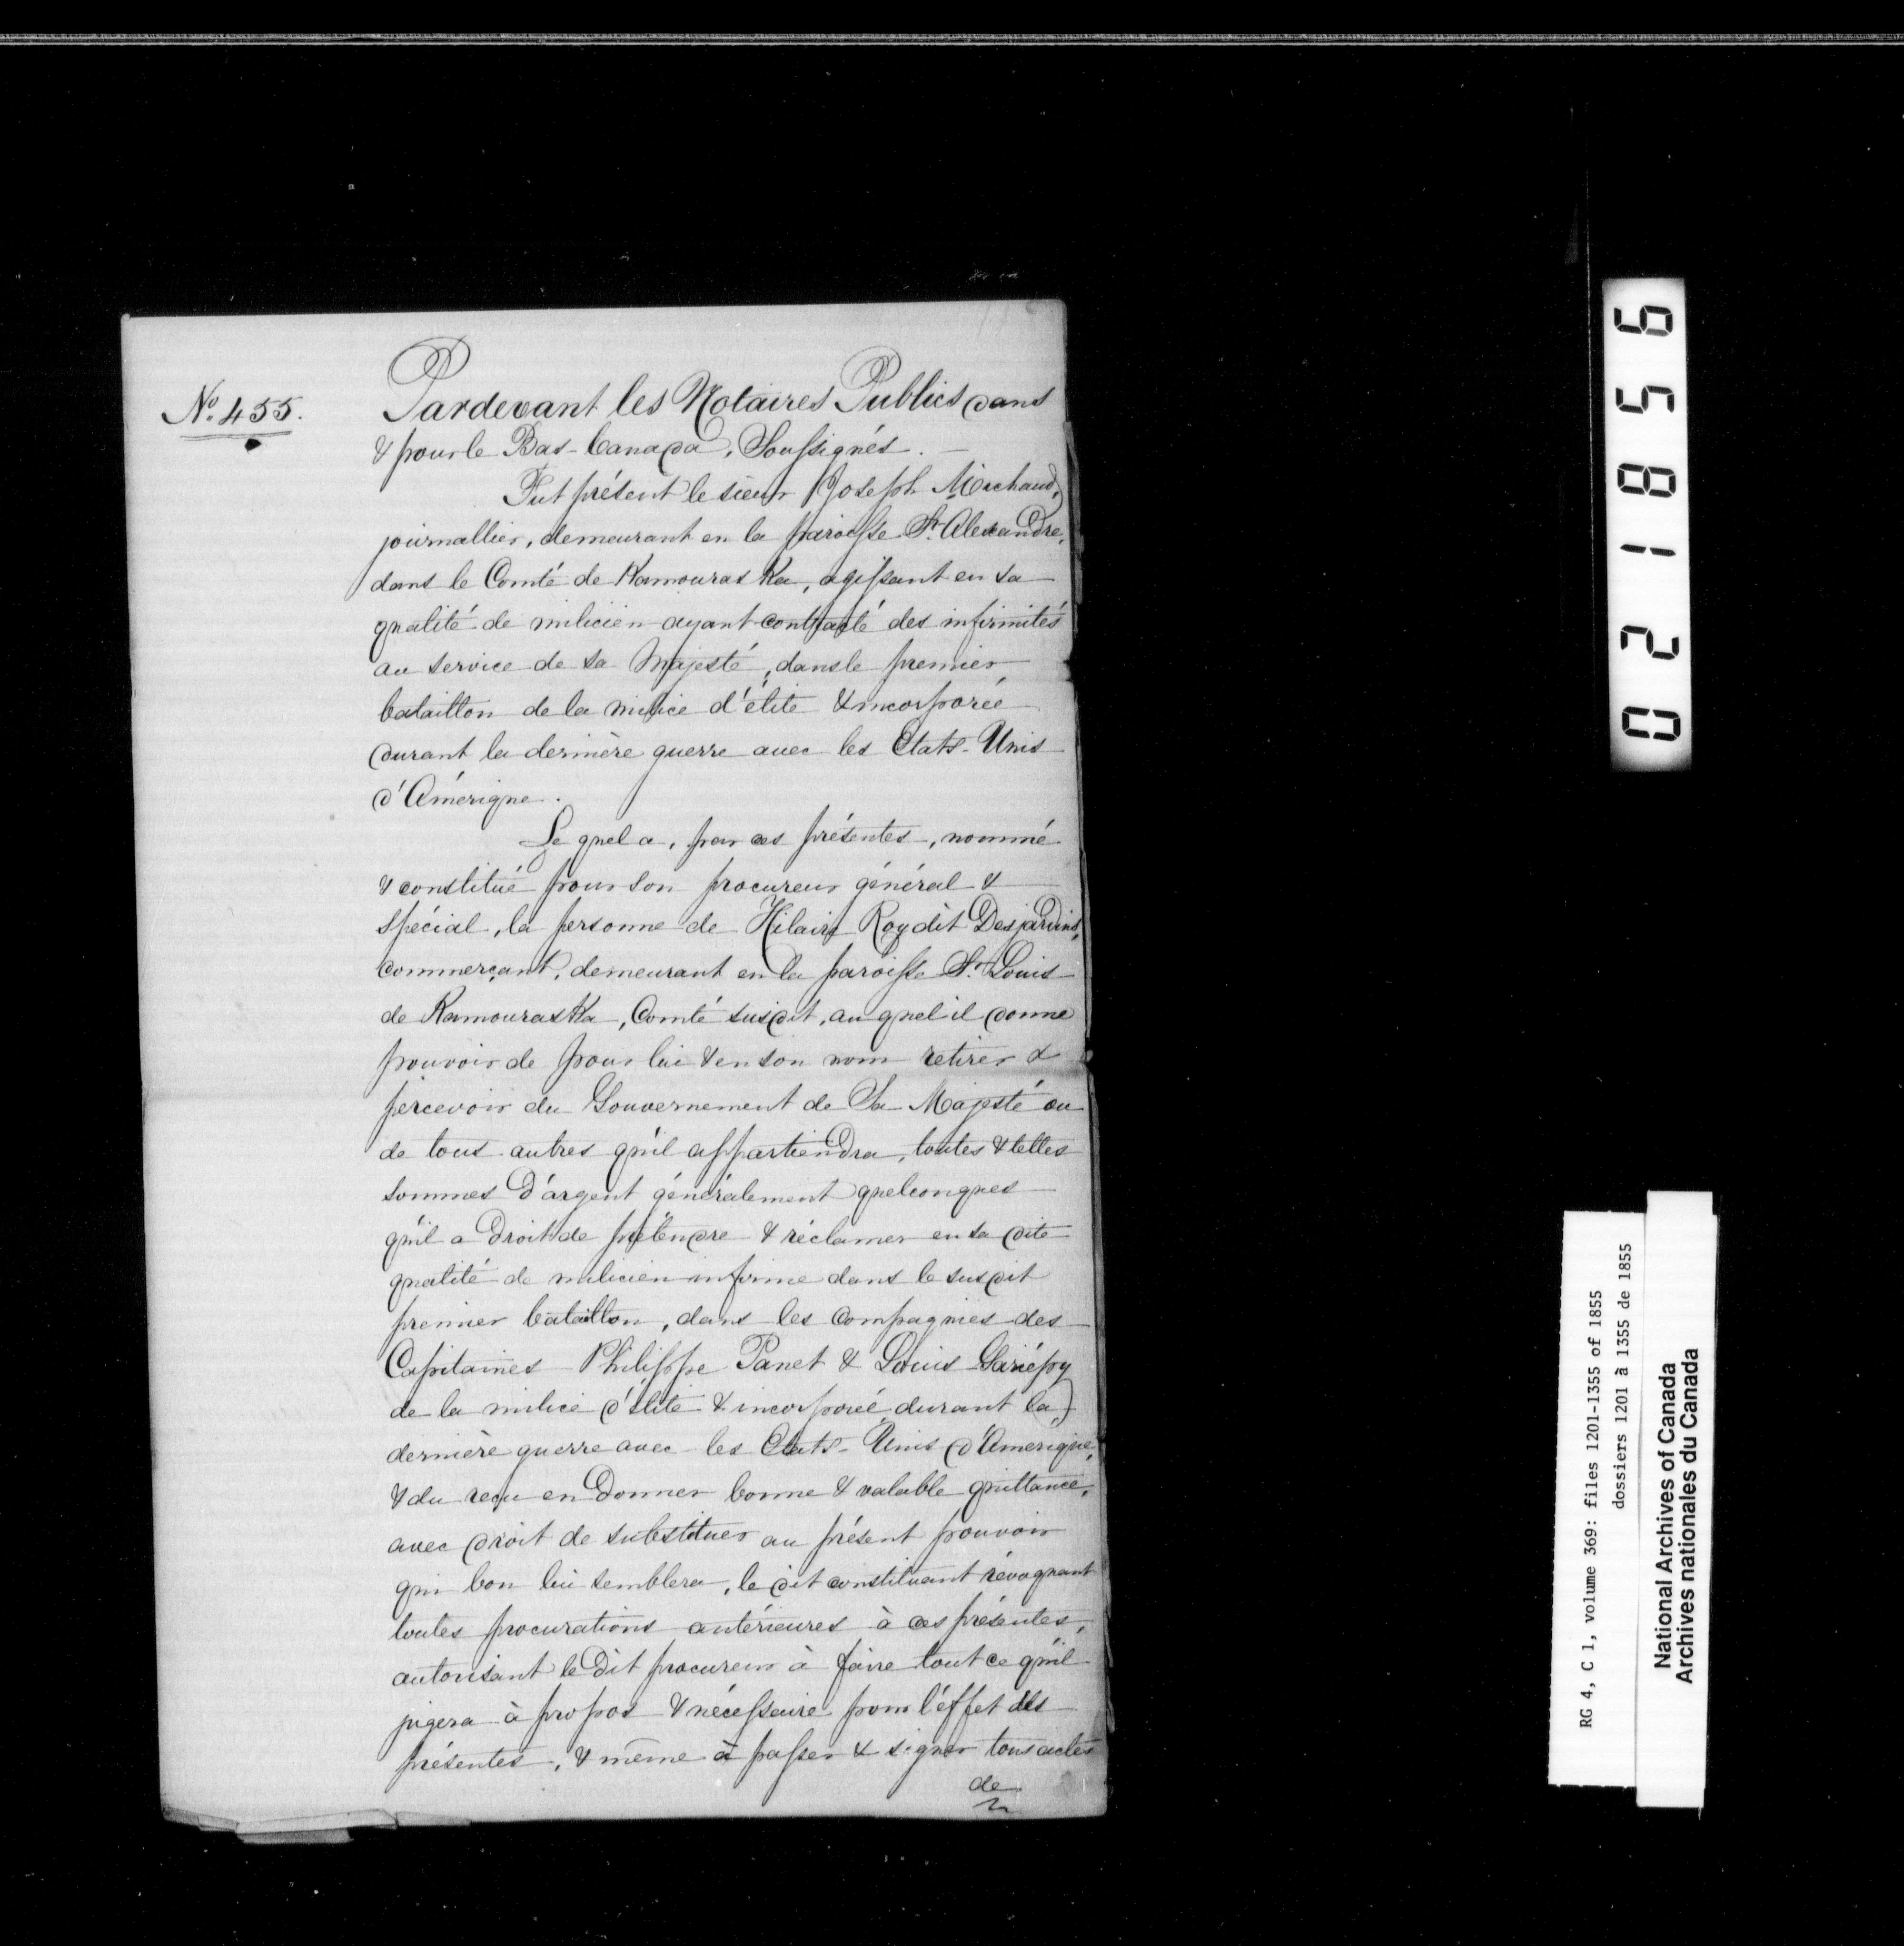 No. 455.
Pardevant les Notaires Publics dans
& pour le Bas-Canada, Soussignés.
Fut présent le sieur Joseph Michaud,
journallier, demeurant en la paroisse St. Alexandre,
dans le Comté de Kamouraska, agissant en sa
qualité de milicien ayant contracté des infirmités
au service de sa Majesté, dans le premier
bataillon de la milice d'élite & incorporée
durant la dernière guerre avec les Etats-Unis
d'Amérique.
Le quel a, par ces présentes, nommé
& constitué pour son procureur général &
spécial, la personne de Hilaire Roy dit Desjardins,
commerçant, demeurant en la paroisse St. Louis
de Kamouraska, Comté susdit, au quel il donne
pouvoir de pour lui & en son nom retirer &
percevoir du Gouvernement de Sa Majesté ou
de tous autres qu'il appartiendra, toutes & telles
sommes d'argent généralement quelconques
qu'il a droit de prétendre & réclamer en sa dite
qualité de milicien infirme dans le susdit
premier bataillon, dans les compagnies des
Capitaines Philippe Panet & Louis Gariépy
de la milice d'élite & incorporée durant la
dernière guerre avec les Etats-Unis d'Amérique,
& du reçu en donner bonne & valable quittance,
avec droit de substituer au présent pouvoir
qui bon lui semblera, le dit constituant révoquant
toutes procurations antérieures à ces présentes,
autorisant le dit procureur à faire tout ce qu'il
jugera à propos & nécessaire pour l'éffet des
présentes, & même à passer & signer tous actes
de
021856
RG 4, C 1, volume 369: files 1201-1355 of 1855
dossiers 1201 à 1355 de 1855
National Archives of Canada
Archives nationales du Canada